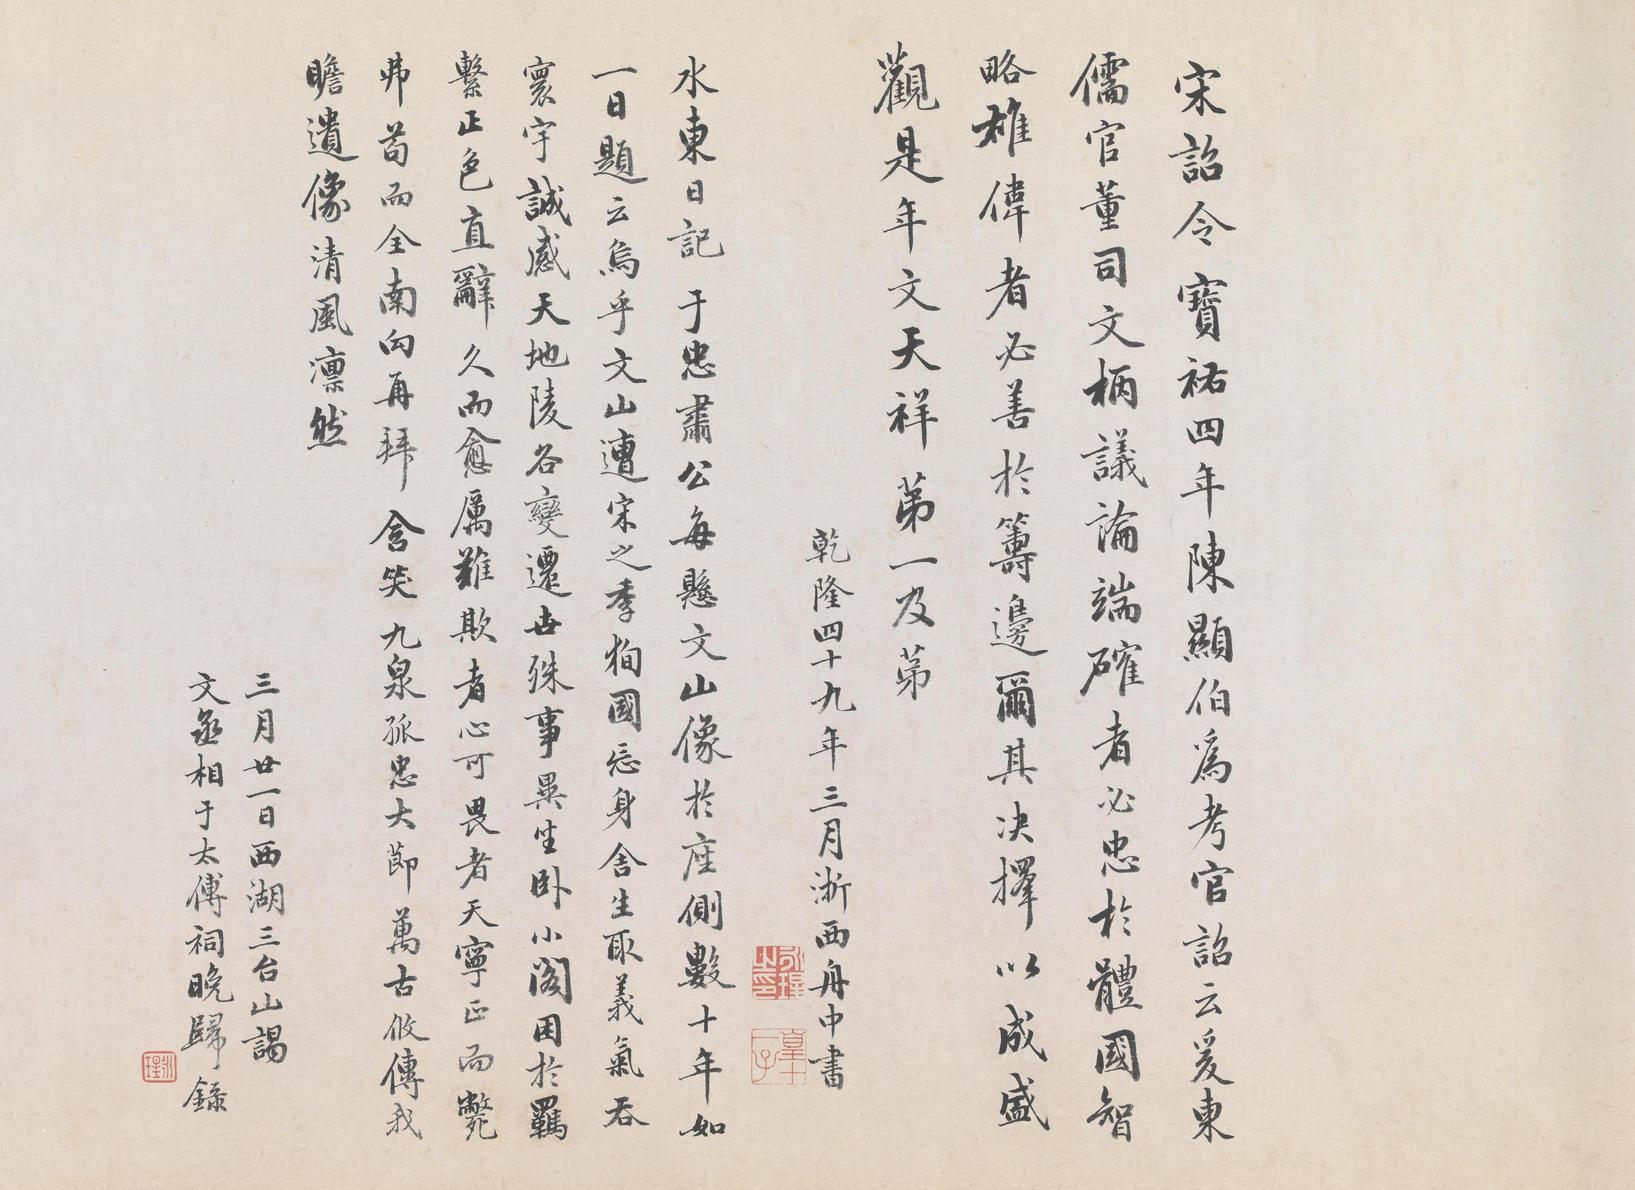 宋詔令寶祐四年陳顯伯爲考官詔云爰柬
儒官董司文柄議論端確者必忠於體國智
略雄偉者必善於籌邊爾其決擇以成盛
觀是年文天祥第一及第
乾隆四十九年三月浙西舟中書
水東日記于忠肅公每懸文山像於座側數十年如
一日題云烏乎文山遭宋之季徇國忘身舍生取義氣吞
寰宇誠感天地陵谷變遷世殊事異坐臥小閣困於羈
繫正色直辭久而愈厲難欺者心可畏者天寧正而斃
弗苟而全南向再拜含笑九泉孤忠大節萬古攸傳我
瞻遺像清風凛然
三月廿一日西湖三台山謁
文丞相于太傅祠晚歸錄